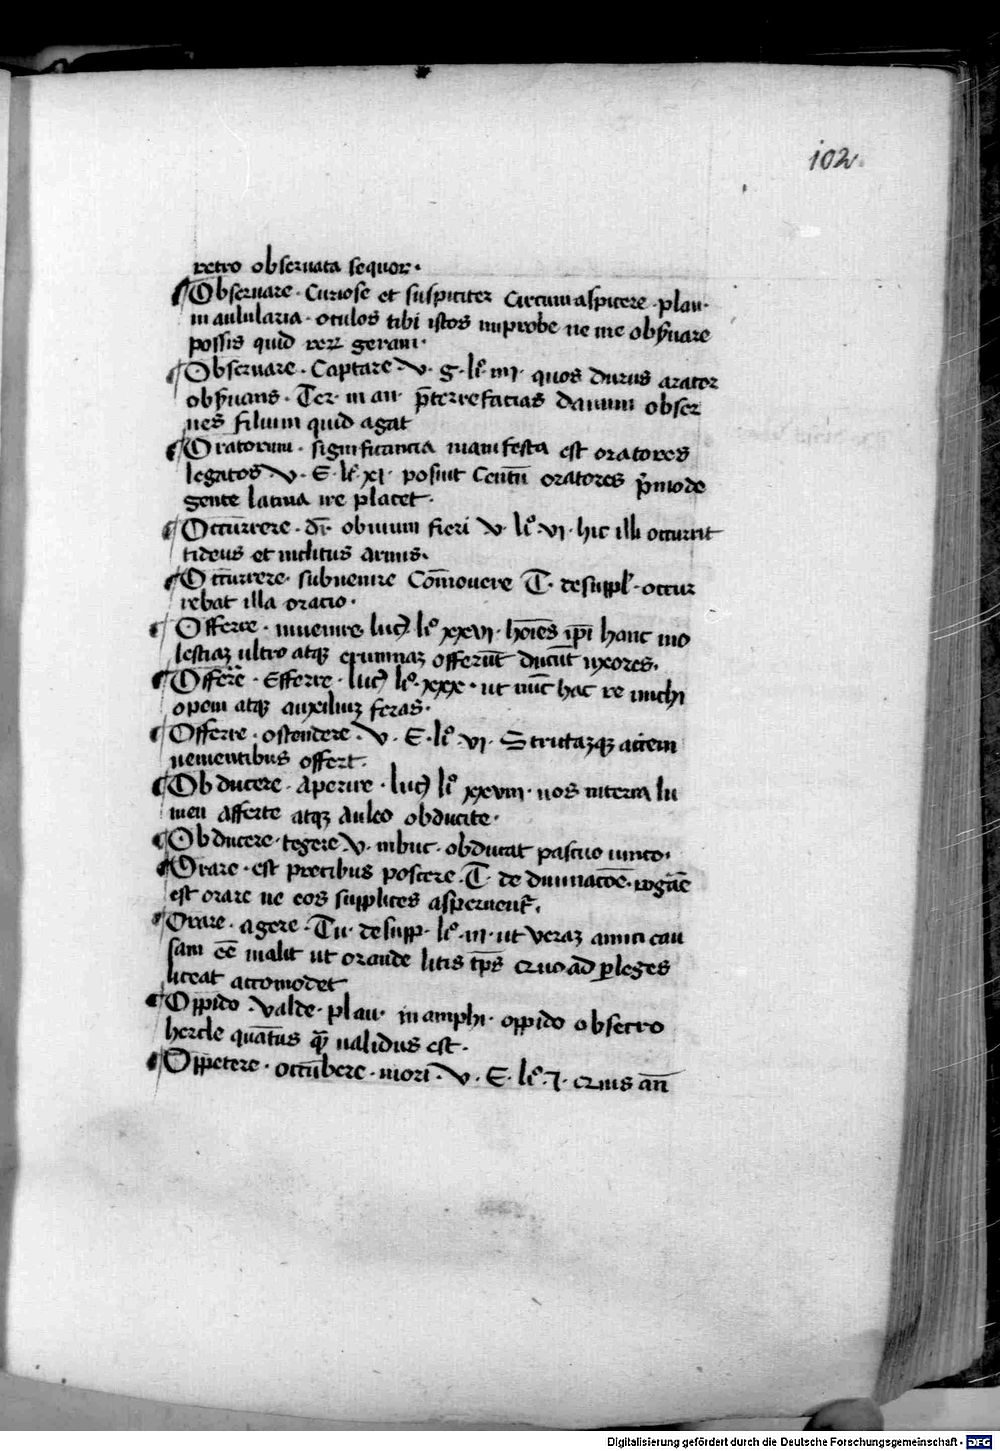 102
retro obseruata sequor·
Obseruare· Curiose et suspiciter circumaspicere· plau·
in aulularia· oculos tibi istos improbe ne me obẜuare
possis quid reꝝ geram·
Obseruare· Captare· v· g· li° iiii· quos durus arator
obẜuans· Ter· in an· p̄terrefacias dauum obser
ues filium quid agat
Oratorum· significancia manifesta est oratores
legatos· v· E· li° xi· posiut Centū oratores p̄mode
gente latina ire placet·
Occurrere· dr̄· obuium fieri v· li° vi· hic illi occurrit
tideus et inclitus armis·
Occurrere· subuenire Com̄ouere T· de suppl̄· occur
rebat illa oracio·
Offerre· inuenire· luc̄· li° xxvi· hoīes ip̄i hanc mo
lestiaꝫ ultro atqꝫ erumnaꝫ offerūt ducūt uxores·
Offerre· Efferre· luc̄· li° xxx· ut nūc hac re michi
opem atqꝫ auxiliuꝫ feras·
Offerre· ostendere· v· E· li° vi· Strictaꝫqꝫ aciem
uenientibus offert·
Obducere· Aperire· luc̄ li° xxviii· uos interea lu
men afferte atqꝫ auleo obducite·
Obducere· tegere v· in buc· obducat pascuo iunco·
Orare· est precibus poscere· T· de diuinacōe· rogāē
est orare ne eos supplices aspernent᷑·
Orare· agere· Tu· de supp· li° iii· ut veraꝫ amici cau
sam eē malit ut orande litis tp̄s quo ad ꝑleges
liceat accomodet
Oppido· valde· plau· in amphi· oppido obsecro
hercle quātus qꝫ ualidus est·
Oppetere· occūbere· mori· v· E· li° I· quis an̄
Digitalisierung gefördert durch die Deutsche Forschungsgemeinschaft - DFG